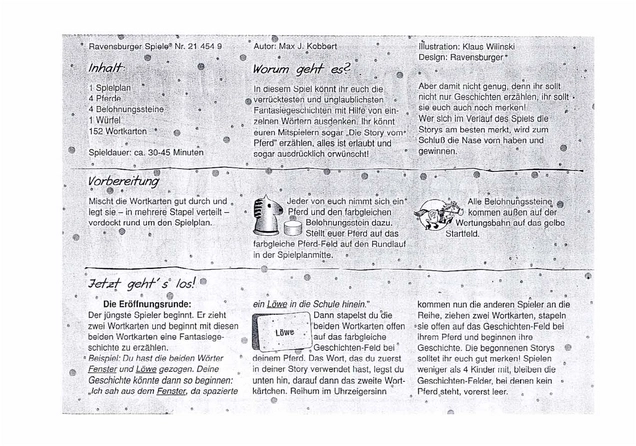 Ravensburger Spiele® Nr. 21 454 9
Autor: Max J. Kobbert
Illustration: Klaus Wilinski
Design: Ravensburger
Inhalt:
1 Spielplan
4 Pferde
4 Belohnungssteine
1 Würfel
152 Wortkarten
Spieldauer: ca. 30-45 Minuten
Worum geht es?
In diesem Spiel könnt ihr euch die
verrücktesten und unglaublichsten
Fantasiegeschichten mit Hilfe von ein-
zelnen Wörtern ausdenken. Ihr könnt
euren Mitspielern sogar „Die Story vom
Pferd" erzählen, alles ist erlaubt und
sogar ausdrücklich erwünscht!
Aber damit nicht genug, denn ihr sollt
nicht nur Geschichten erzählen, ihr sollt
sie euch auch noch merken!
Wer sich im Verlauf des Spiels die
Storys am besten merkt, wird zum
Schluß die Nase vorn haben und
gewinnen.
Vorbereitung
Mischt die Wortkarten gut durch und
legt sie – in mehrere Stapel verteilt –
verdeckt rund um den Spielplan.
Jeder von euch nimmt sich ein
Pferd und den farbgleichen
Belohnungsstein dazu.
Stellt euer Pferd auf das
farbgleiche Pferd-Feld auf den Rundlauf
in der Spielplanmitte.
Alle Belohnungssteine
kommen außen auf der
Wertungsbahn auf das gelbe
Startfeld.
Jetzt geht's los!
Die Eröffnungsrunde:
Der jüngste Spieler beginnt. Er zieht
zwei Wortkarten und beginnt mit diesen
beiden Wortkarten eine Fantasiege-
schichte zu erzählen.
Beispiel: Du hast die beiden Wörter
Fenster und Löwe gezogen. Deine
Geschichte könnte dann so beginnen:
„Ich sah aus dem Fenster, da spazierte
ein Löwe in die Schule hinein."
Dann stapelst du die
beiden Wortkarten offen
auf das farbgleiche
Geschichten-Feld bei
Löwe
deinem Pferd. Das Wort, das du zuerst
in deiner Story verwendet hast, legst du
unten hin, darauf dann das zweite Wort-
kärtchen. Reihum im Uhrzeigersinn
kommen nun die anderen Spieler an die
Reihe, ziehen zwei Wortkarten, stapeln
sie offen auf das Geschichten-Feld bei
ihrem Pferd und beginnen ihre
Geschichte. Die begonnenen Storys
solltet ihr euch gut merken! Spielen
weniger als 4 Kinder mit, bleiben die
Geschichten-Felder, bei denen kein
Pferd steht, vorerst leer.